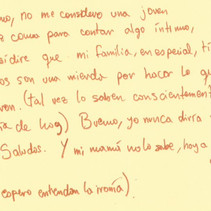 no, no me considero una joven
z como para contar algo íntimo,
diré que mi familia, en especial, ti
os son una mierda por hacer lo qu
ron. (tal vez lo saben conscientement
ia de kog) Bueno, yo nunca dirra
Saludos. Y mi mamá no lo sabe, hoy a
espero entiendan la ironía).